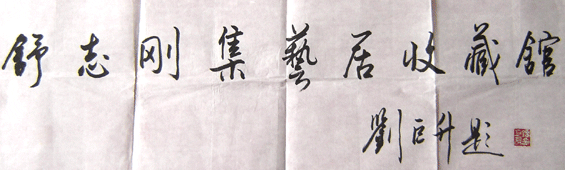 舒志刚集藝居收藏館
劉巨升題